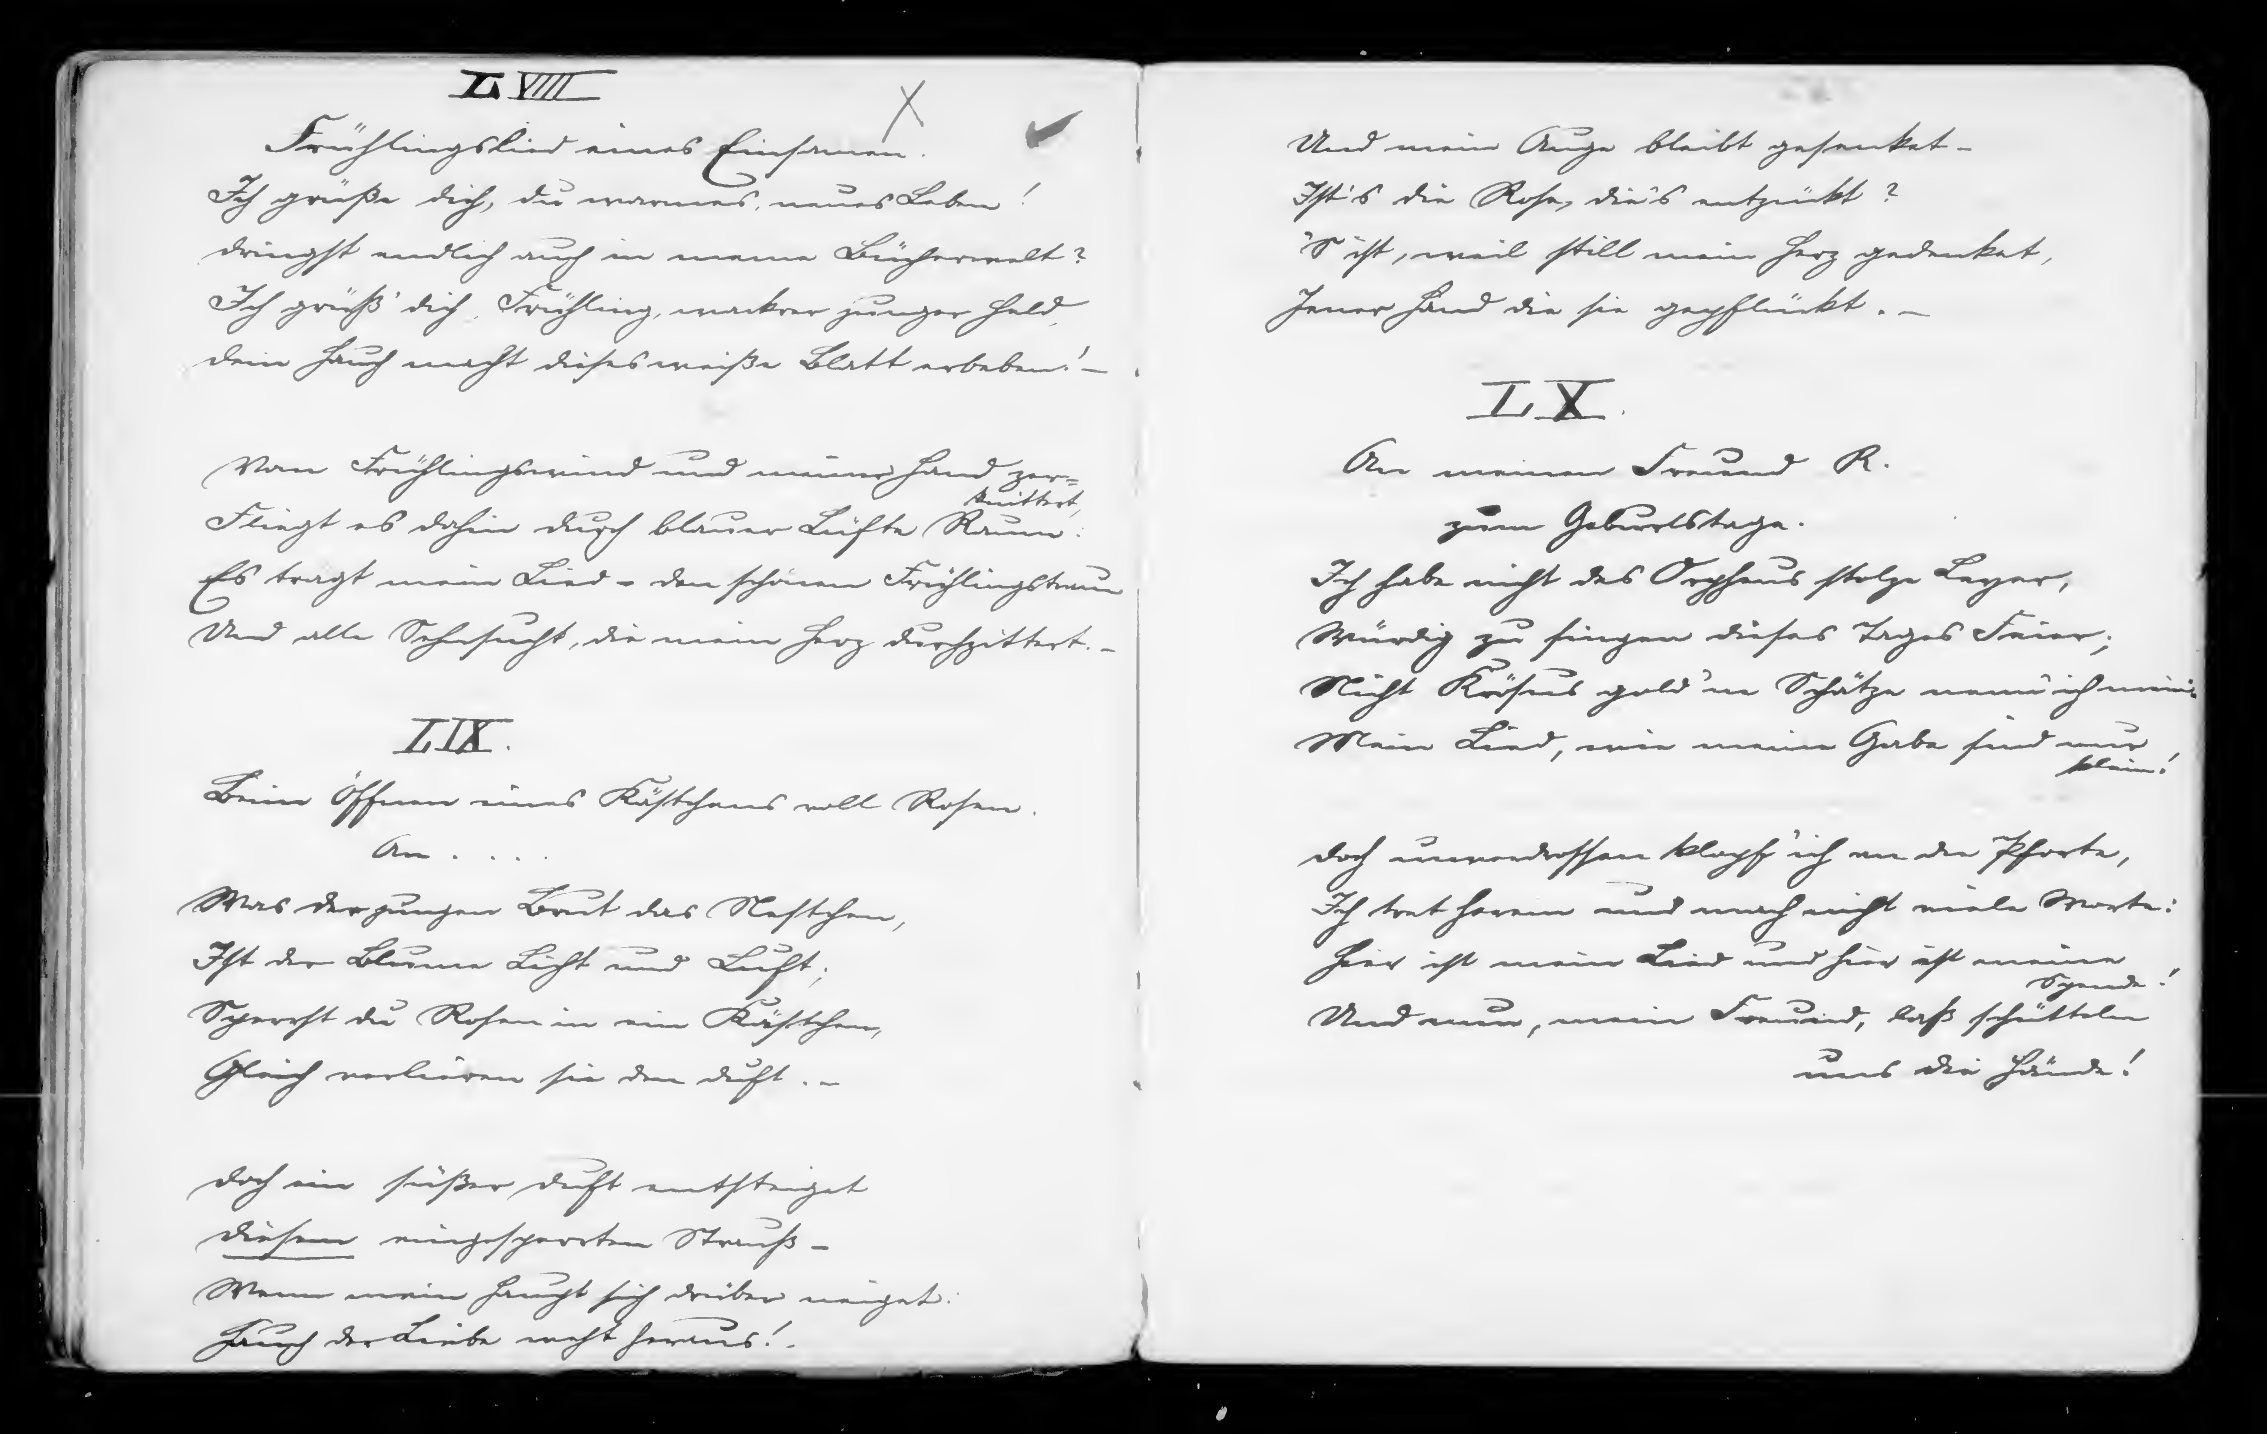 LVIII
Frühlingslied eines Einsamen.
Ich grüße dich, du warmes, neues Leben!
dringst endlich auch in meine Bücherwelt?
Ich grüß' dich, Frühling, wackrer junger Held,
dein Hauch macht dieses weiße Blatt erbeben! –
Vom Frühlingswind und meiner Hand zer=
knittert,
Fliegt es dahin durch blauer Lüfte Raum:
Es tragt mein Lied – den schönen Frühlingstraum
Und alle Sehnsucht, die mein Herz durchzittert. –
LIX.
Beim Öffnen eines Kästchens voll Rosen.
An . . . .
Was der jungen Brut das Nestchen,
Ist der Blume Licht und Luft;
Sperrst du Rosen in ein Kästchen,
Gleich verlieren sie den Duft. –
Doch ein süßer Duft entsteiget
Diesem eingesperrten Strauß –
Wenn mein Haupt sich drüber neiget:
Hauch der Liebe weht heraus! –
Und mein Auge bleibt gesenket –
Ist's die Rose, die's entzückt?
'S ist, weil still mein Herz gedenket,
Jener Hand die sie gepflückt. –
LX.
An meinen Freund R.
zum Geburtstage.
Ich habe nicht des Orpheus stolze Leyer,
Würdig zu singen dieses Tages Feier;
Nicht Krösus gold'ne Schätze nenn' ich mein:
Mein Lied, wie meine Gabe sind nur
klein!
Doch unverdrossen klopf' ich an die Pforte,
Ich tret herein und mach nicht viele Worte:
Hier ist mein Lied und hier ist meine
Spende!
Und nun, mein Freund, laß schütteln
uns die Hände!